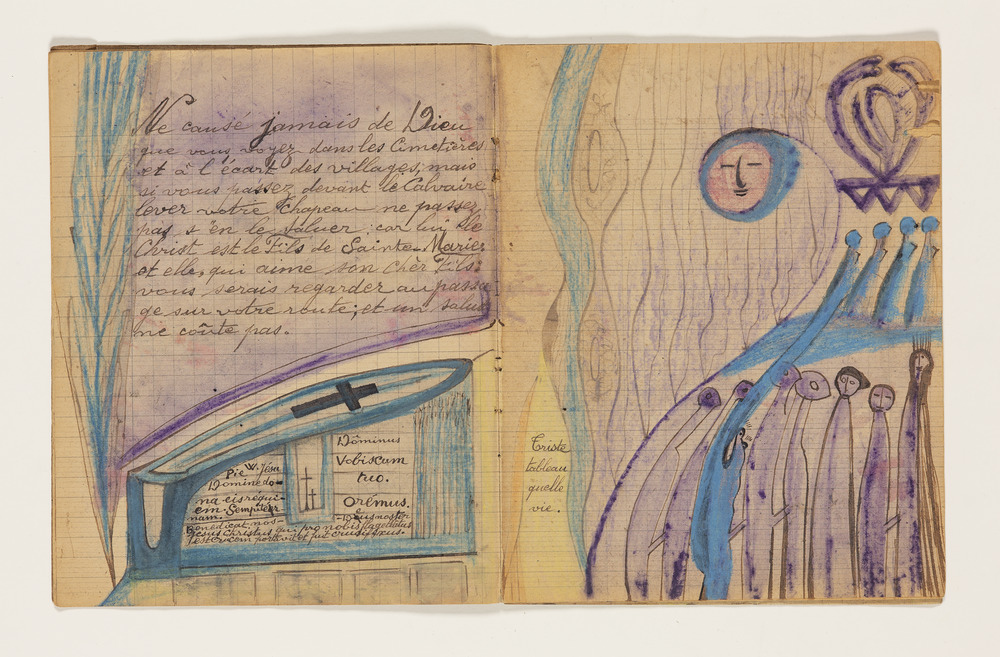 Ne causé jamais de Dieu
que vous voyez dans les Cimetières
et à l'écart des villages; mais
si vous passez devant le Calvaire
lover votre Chapeau ne passez
pas s'en le saluer; car lui le
Christ est le Fils de Sainte-Marie;
et elle, qui aime son Chèr Fils;
vous serais regarder au passa
ge sur votre route; et un salut
ne coûte pas.
Pie W. Jésu
Domine do-
na-eis requi-
em-Sempiter
nam.
Bénédicat-nos-
Jesus Christus qui pro nobis flagellatus
est crucem portavit et fuit crucifixus.
Dôminus
Vobiscum
tuo.
Orémus.
Triste
tableau
quelle
vie.